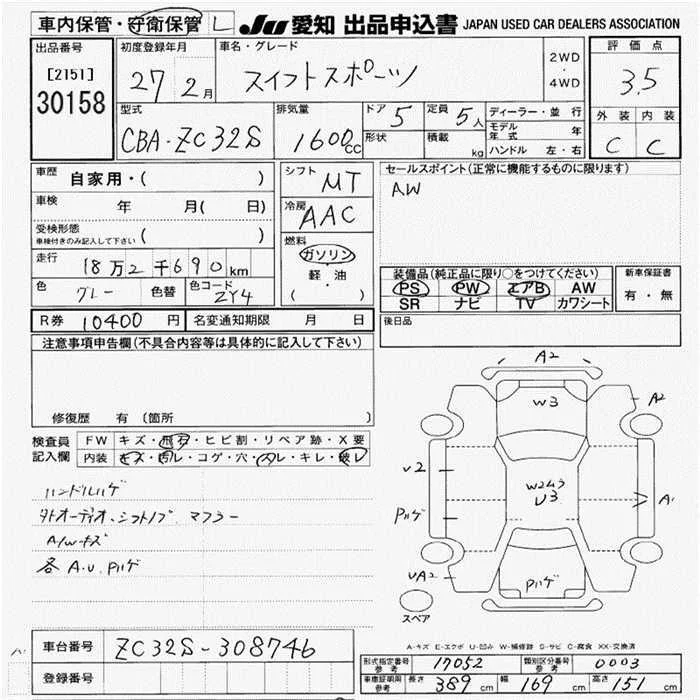 車内保管・守衛保管 L JU 愛知 出品申込書 JAPAN USED CAR DEALERS ASSOCIATION
出品番号 初度登録年月 車名・グレード 2WD・4WD 評価点
[2151] 27 2月 スイフトスポーツ 3.5
30158
型式 排気量 ドア 5 定員 5人 ディーラー・並行 外装 内装
CBA-ZC32S 1600cc 形状 積載 kg モデル年式 年 C C
ハンドル 左・右
車歴 自家用・( ) シフト MT セールスポイント(正常に機能するものに限ります)
車検 年 月( 日) 冷房 AAC AW
受検形態 車検付きのみ記入して下さい ( ) 燃料 ガソリン
走行 18万2千690km 軽油 装備品(純正品に限り○をつけてください) 新車保証書
色 グレー 色替 色コード ZY4 ( ) PS PW エアB AW 有・無
SR ナビ TV カワシート
R券 10400円 名変通知期限 月 日 後日品
注意事項申告欄(不具合内容等は具体的に記入して下さい)
修復歴 有 (箇所
検査員記入欄 FW キズ・飛石・ヒビ割・リペア跡・X要
内装 キズ・汚レ・コゲ・穴・スレ・キレ・破レ
ハンドルハゲ
外オーディオ・シフトノブ マフラー
A/Wキズ
各A.U.Pハゲ
A2
W3
A2
U2
W2ムラ
U3
A1
Pハゲ
UA2
Pハゲ
スペア
A-キズ E-エクボ U-凹み W-補修跡 S-サビ C-腐食 XX-交換済
車台番号 ZC32S-308746
登録番号
形式指定番号 参考 17052 類別区分番号 参考 0003
車庫証明用 参考 長さ 389cm 幅 169cm 高さ 151cm